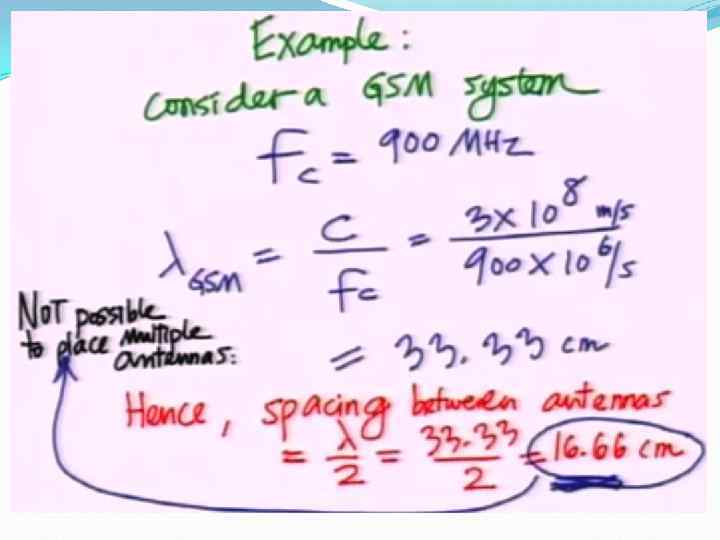 Example:
consider a GSM system
fc = 900 MHz
λGSM = c / fc = 3 × 10^8 m/s / 900 × 10^6 /s
NOT possible
to place multiple
antennas:
= 33.33 cm
Hence, spacing between antennas
= λ / 2 = 33.33 / 2 = 16.66 cm